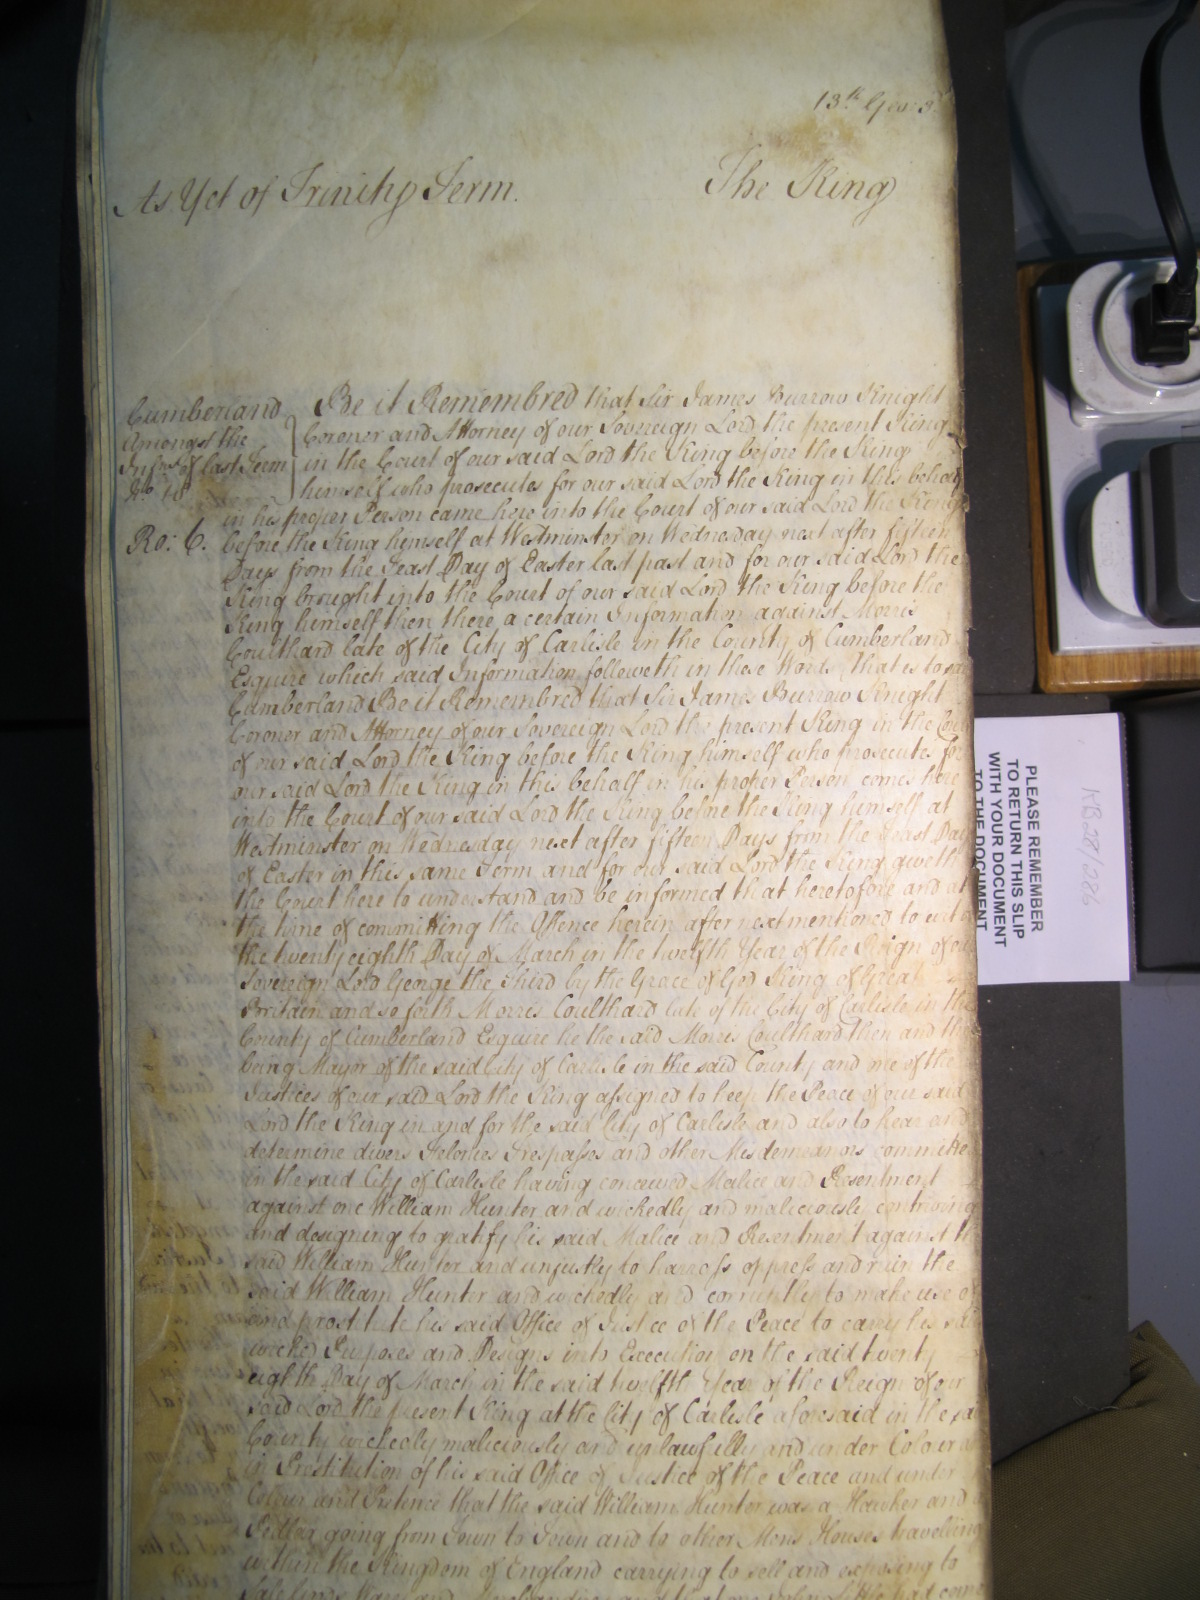 13th Geo: 3d
As Yet of Trinity Term. The King
Cumberland
Amongst the
Infns of last Term
No. 18
Ro: 6.
Be it Remembred that Sir James Burrow Knight
Coroner and Attorney of our Sovereign Lord the present King
in the Court of our said Lord the King before the King
himself who prosecutes for our said Lord the King in this behalf
in his proper Person came here into the Court of our said Lord the King
before the King himself at Westminster on Wednesday next after fifteen
Days from the Feast Day of Easter last past and for our said Lord the
King brought into the Court of our said Lord the King before the
King himself then there a certain Information against Morris
Coulthard late of the City of Carlisle in the County of Cumberland
Esquire which said Information followeth in these Words (that is to say)
Cumberland Be it Remembred that Sir James Burrow Knight
Coroner and Attorney of our Sovereign Lord the present King in the
of our said Lord the King before the King himself who prosecutes for
our said Lord the King in this behalf in his proper Person comes here
into the Court of our said Lord the King before the King himself at
Westminster on Wednesday next after fifteen Days from the Feast Day
of Easter in this same Term and for our said Lord the King giveth
the Court here to understand and be informed that heretofore and at
the time of committing the Offence herein after next mentioned to wit on
the twenty eighth Day of March in the twelfth Year of the Reign of our
Sovereign Lord George the Third by the Grace of God King of Great
Britain and so forth Morris Coulthard late of the City of Carlisle in the
County of Cumberland Esquire he the said Morris Coulthard then and
being Mayor of the said City of Carlisle in the said County and one of the
Justices of our said Lord the King assigned to keep the Peace of our said
Lord the King in and for the said City of Carlisle and also to hear and
determine divers Felonies Trespasses and other Misdemeanors committed
in the said City of Carlisle having conceived Malice and Resentment
against one William Hunter and wickedly and maliciously contriving
and designing to gratify his said Malice and Resentment against the
said William Hunter and unjustly to harrass oppress and ruin the
said William Hunter and wickedly and corruptly to make use of
and prostitute his said Office of Justice of the Peace to carry his said
wicked Purposes and Designs into Execution on the said twenty
eighth Day of March in the said twelfth Year of the Reign of our
said Lord the present King at the City of Carlisle aforesaid in the said
County wickedly maliciously and unlawfully and under Colour and
in Prostitution of his said Office of Justice of the Peace and under
Colour and Pretence that the said William Hunter was a Hawker and
Pedlar going from Town to Town and to other Mens Houses travelling
within the Kingdom of England carrying to sell and exposing to
Sale
PLEASE REMEMBER
TO RETURN THIS SLIP
WITH YOUR DOCUMENT
TO THE DOCUMENT
KB28/286